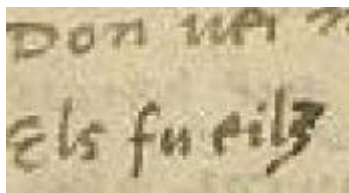 Don uei
Els fueilz